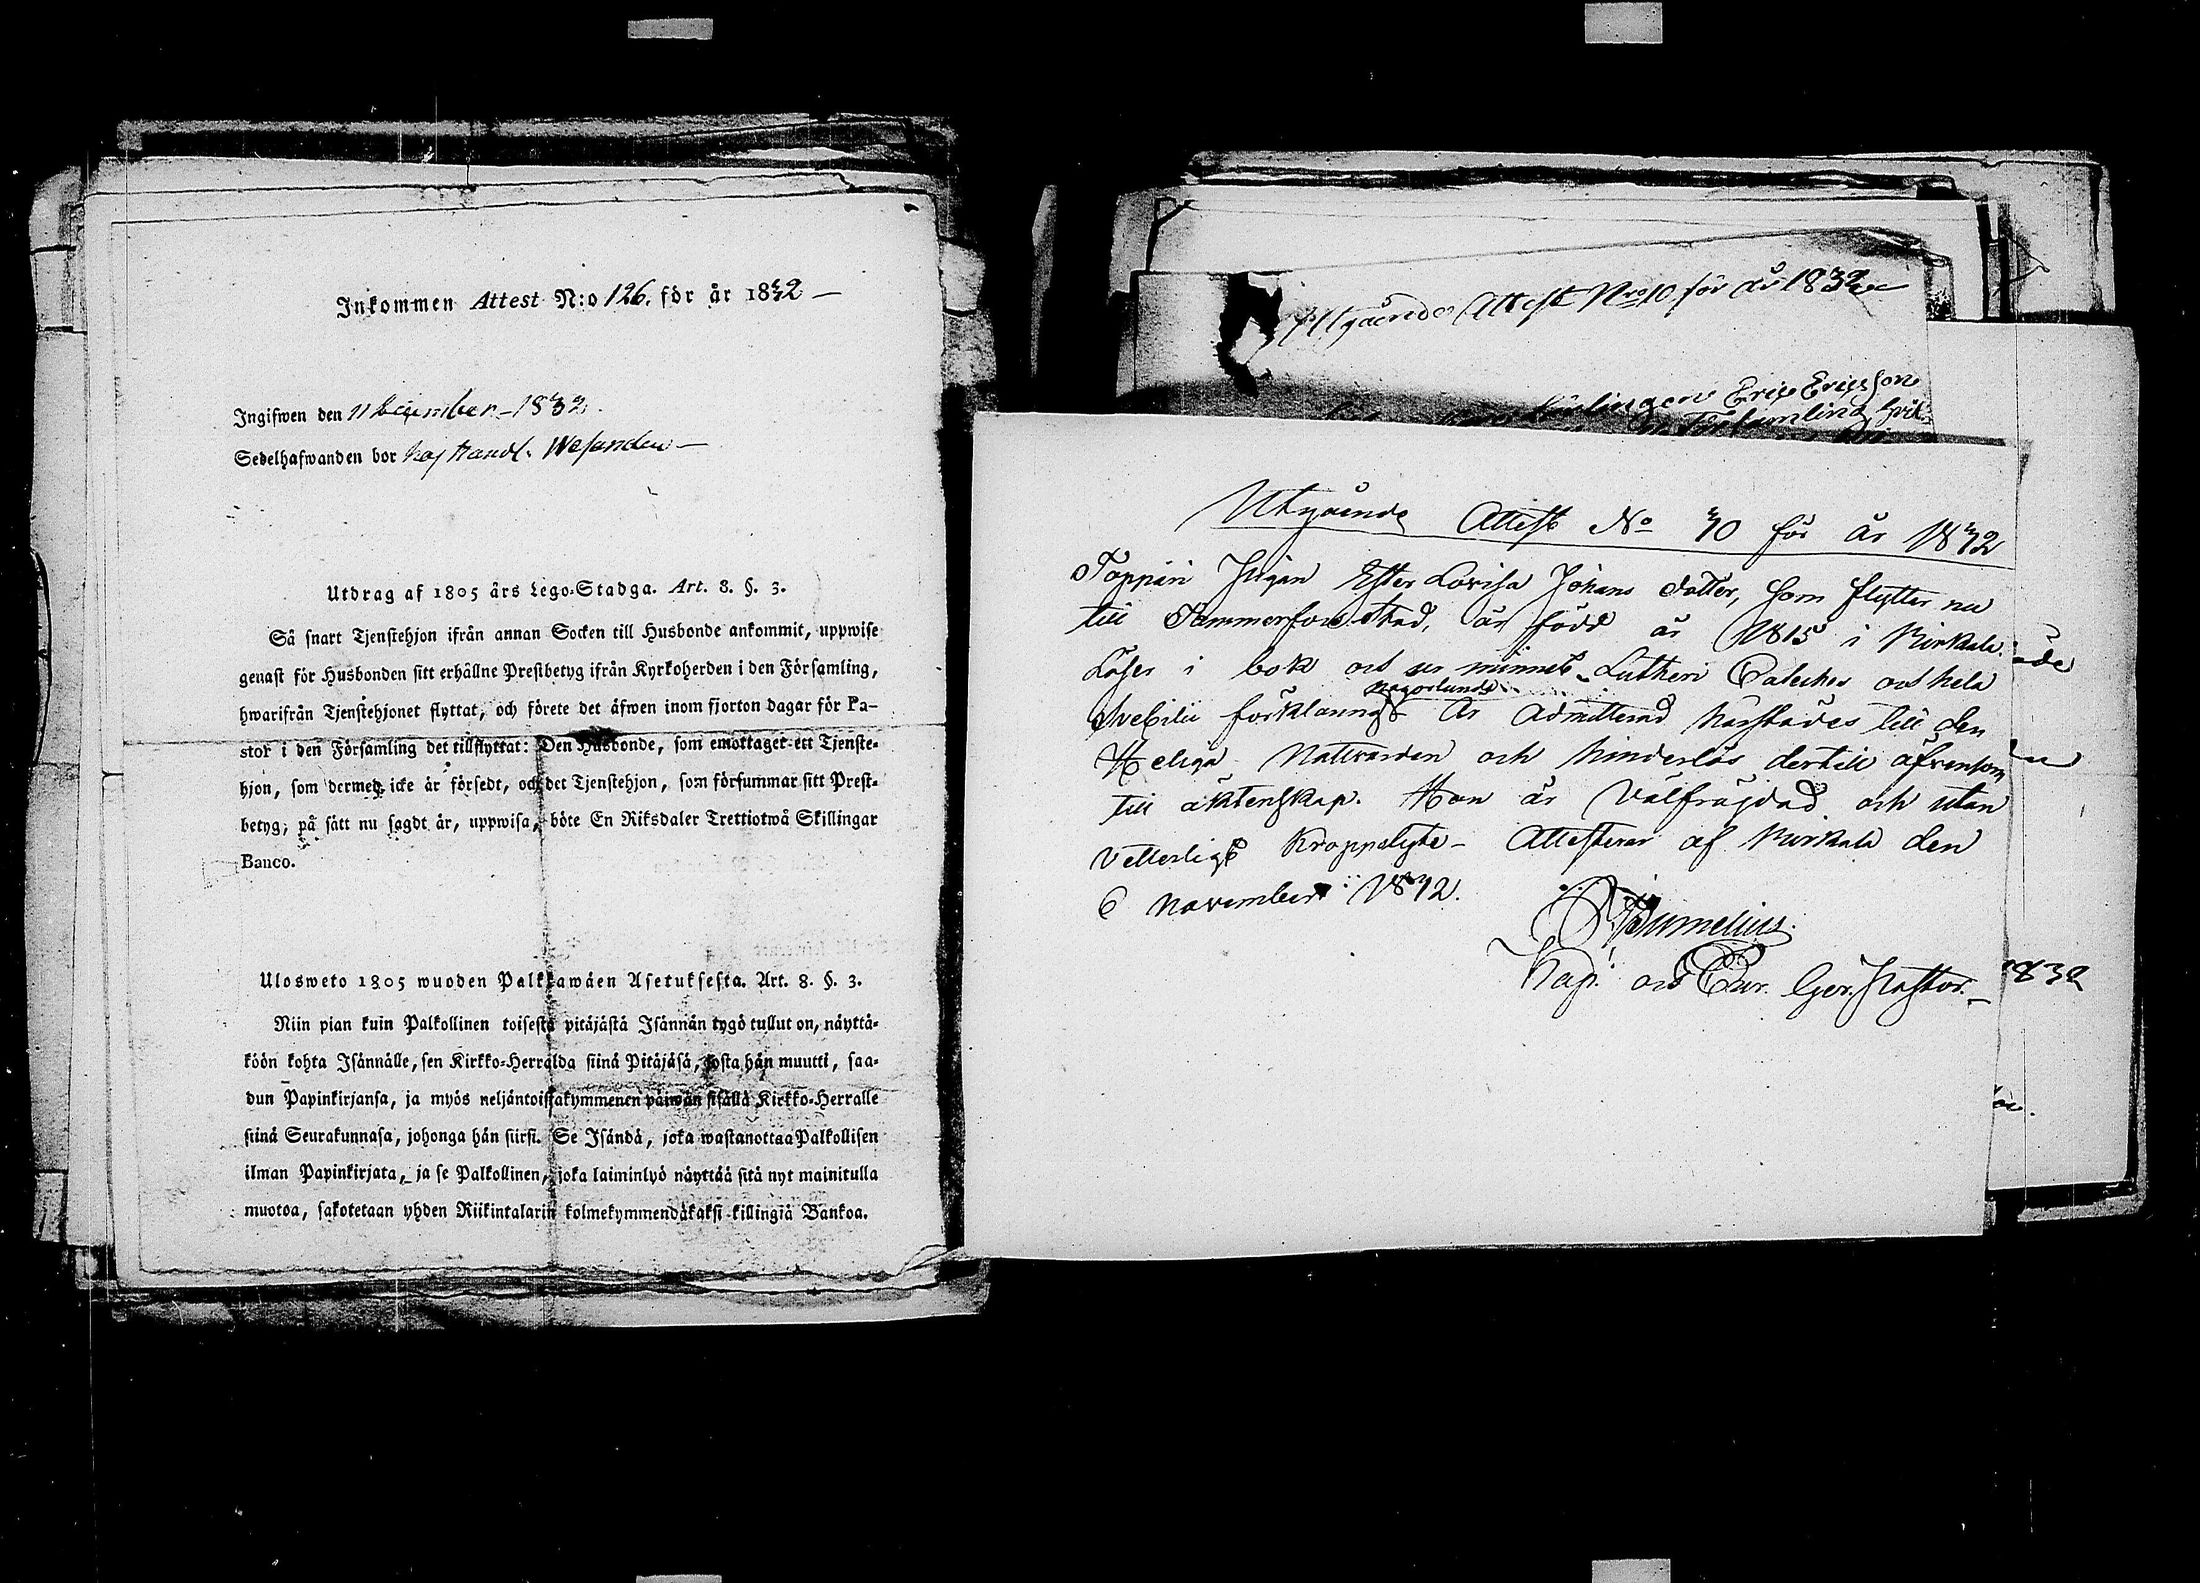 Inkommen Attest N:o 126. för år 1832 —
Ingifwen den 11 December - 1832.
Sedelhafwanden bor hos Handl. Wesander —
Utdrag af 1805 års Lego-Stadga. Art. 8. §. 3.
Så snart Tjenstehjon ifrån annan Socken till Husbonde ankommit, uppwise
genast för Husbonden sitt erhållne Prestbetyg ifrån Kyrkoherden i den Församling,
hwarifrån Tjenstehjonet flyttat, och förete det äfwen inom fjorton dagar för Pa-
stor i den Församling det tillflyttat: Den Husbonde, som emottaget ett Tjenste-
hjon, som dermed icke är försedt, och det Tjenstehjon, som försummar sitt Prest-
betyg, på sätt nu sagdt är, uppwisa, böte En Riksdaler Trettiotwå Skillingar
Banco.
Ulosweto 1805 wuoden Palkkawäen Asetuksesta. Art. 8. §. 3.
Niin pian kuin Palkollinen toisesta pitäjästä Isännän tygö tullut on, näyttä-
köön kohta Isännälle, sen Kirkko-Herralda siinä Pitäjäsä, josta hän muutti, saa-
dun Papinkirjansa, ja myös neljäntoistakymmenen päiwän sisällä Kirkko-Herralle
siinä Seurakunnasa, johonga hän siirsi. Se Isändä, joka wastanottaa Palkollisen
ilman Papinkirjata, ja se Palkollinen, joka laiminlyö näyttää sitä nyt mainitulla
muotoa, sakotetaan yhden Riikintalarin kolmekymmendäkaksi killingiä Bankoa.
Utgående Attest Nro 10 för år 1832
Erik Ericsson
Församling
Utgående Attest No 70 för år 1832
Pigan Ester Lovisa Johans dotter, som flytter nu
till Tammerfors Stad, är född år 1815 i Birkala.
Läser i bok och ur minnet Lutheri Cateches och hela
någorlunda
Svebilii förklaring Är admitterad härstädes till den
Heliga Nattvarden och hinderlös dertill äfvensom
till äktenskap. Hon är välfräjdad och utan
vetterligt kroppslyte - Attesterar af Birkala den
6 November 1832.
Kap. och Cur. Ger. Pastor. -
1832